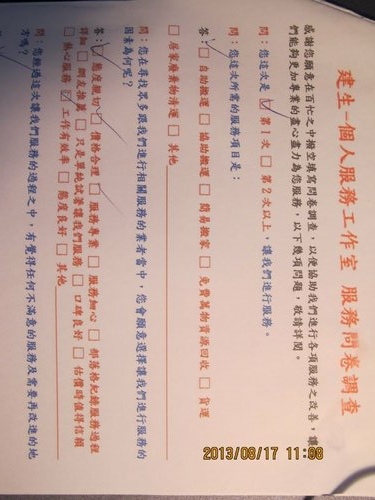 建生-個人服務工作室 服務問卷調查
感謝您願意在百忙之中撥空填寫問卷調查，以便協助我們進行各項服務之改善，讓
們能夠更加專業的盡心盡力為您服務，以下幾項問題，敬請詳閱。
問：您這次是 □ 第1次 □ 第2次以上，讓我們進行服務。
問：您這次所需的服務項目是：
答：□ 自助搬運 □ 協助搬運 □ 簡易搬家 □ 免費舊物資源回收 □ 貨運
□ 居家廢棄物清運 □ 其他
問：您在尋找眾多跟我們進行相關服務的業者當中，您會願意選擇讓我們進行服務的
因素為何呢？
答：□ 態度親切 □ 價格合理 □ 服務專業 □ 服務細心 □ 部落格紀錄服務過程
詳細 □ 網友推薦 □ 只是單純試著讓我們服務 □ 口碑良好 □ 估價時值得信賴
□ 熱心服務 □ 工作有效率 □ 態度良好 □ 其他
問：您經過這次讓我們服務的過程之中，有覺得任何不滿意的服務及需要再改進的地
方嗎？
2013/08/17